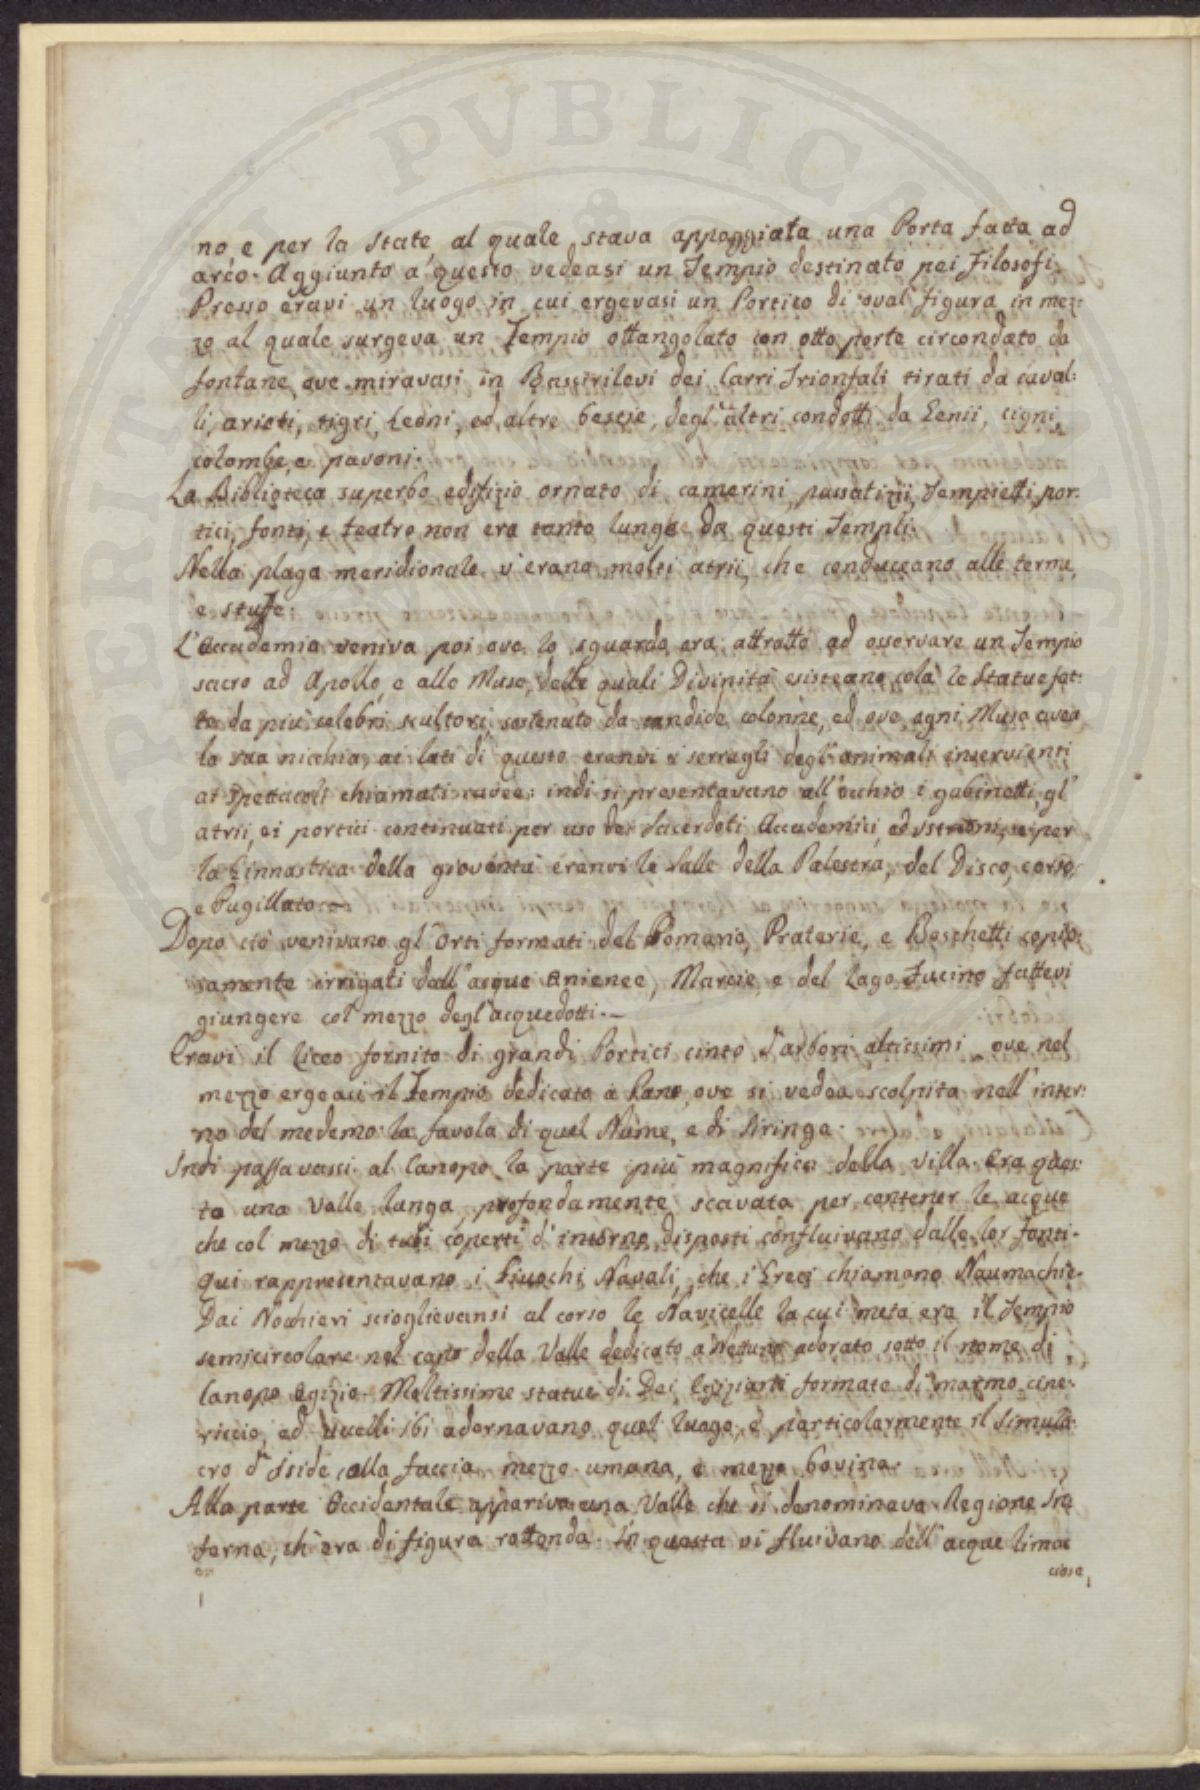 no e per la state al quale stava appoggiata una Porta fatta ad
arco. Aggiunto a questo vedeasi un Tempio destinato pei Filosofi.
Presso eravi un luogo in cui ergevasi un Portico di oval figura in mez:
zo al quale surgeva un Tempio ottangolato con otto porte circondato da
fontane ove miravasi in Bassirilevi dei Carri Trionfali tirati da caval:
li, arieti, tigri, Leoni, ed altre bestie, degl'altri condotti da Genii, cigni,
colombe, e pavoni.
La Biblioteca superbo edifizio ornato di camerini, passatizii, Tempietti, por:
tici, fonti, e teatro non era tanto lungi da questi Templi.
Nella plaga meridionale v'erano molti atrii, che conduceano alle terme,
e stuffe.
L'Accademia veniva poi ove lo sguardo era attratto ad osservare un Tempio
sacro ad Apollo, e alle Muse, delle quali Divinità esisteano colà le Statue fat:
te da più celebri scultori, sostenuto da candide colonne, ed ove ogni Musa avea
la sua nicchia, ai lati di questo eranvi i serragli degl'animali inservienti
ai spettacoli chiamati cavee: indi si presentavano all'occhio i gabinetti, gl'
atrii, ei portici continuati per uso dei Sacerdoti, Accademici, ed Istrioni, e per
la Ginnastica della gioventù eranvi le Salle della Palestra, del Disco, corso,
e Pugillato.
Dopo ciò venivano gl'Orti formati del Pomario, Praterie, e Boschetti copio:
samente irrigati dall'acque Aniene, Marcie, e del Lago Fucino fattevi
giungere col mezzo degl'acquedotti.
Eravi il Liceo fornito di grandi Portici cinto d'arbori altissimi, ove nel
mezzo ergeasi il Tempio dedicato a Pane, ove si vedea scolpita nell'inter:
no del medemo la favola di quel Nume, e di Siringa.
Indi passavassi al Canopo la parte più magnifica della villa. Era ques:
ta una Valle lunga, profondamente scavata per contener le acque
che col mezzo di tubi coperti d'intorno disposti confluivano dalle lor fonti.
Qui rappresentavano i Giuochi Navali, che i Greci chiamano Naumachie.
Dai Nochieri scioglievansi al corso le Navicelle la cui meta era il Tempio
semicircolare nel capo della Valle dedicato a Nettuno adorato sotto il nome di
Canopo Egizio. Moltissime statue di Dei Egiziani formate di marmo cine:
riccio, ed Uccelli ibi adornavano quel luogo, e particolarmente il Simula:
cro d'Iside, alla faccia mezzo umana, e mezza bovina.
Alla parte Occidentale appariva una Valle che si denominava Regione In:
ferna, ch'era di figura rottonda. In questa vi fluivano dell'acque limac
ciose,